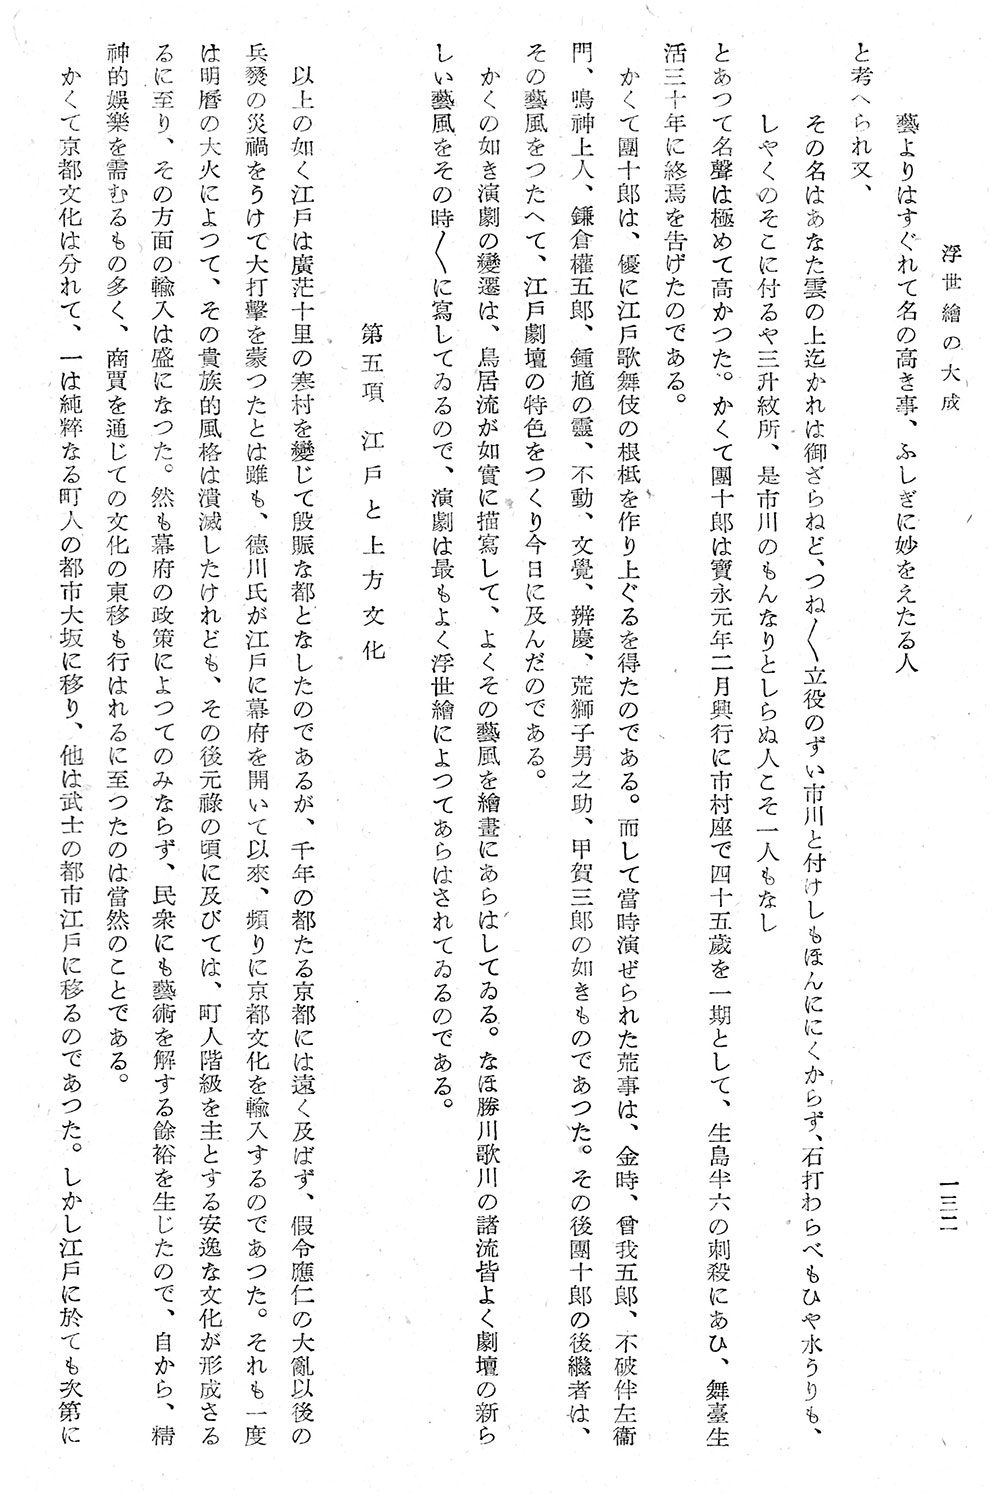 浮世繪の大成
一三二
藝よりはすぐれて名の高き事、ふしぎに妙をえたる人
と考へられ又、
その名はあなた雲の上迄かれは御ざらねど、つね〱立役のずい市川と付けしもほんににくからず、石打わらべもひや水うりも、
しやくのそこに付るや三升紋所、是市川のもんなりとしらぬ人こそ一人もなし
とあつて名聲は極めて高かつた。かくて團十郎は寶永元年二月興行に市村座で四十五歲を一期として、生島半六の刺殺にあひ、舞臺生
活三十年に終焉を告げたのである。
かくて團十郎は、優に江戸歌舞伎の根柢を作り上ぐるを得たのである。而して當時演ぜられた荒事は、金時、曾我五郎、不破伴左衞
門、鳴神上人、鎌倉權五郎、鍾馗の靈、不動、文覺、辨慶、荒獅子男之助、甲賀三郎の如きものであつた。その後團十郎の後繼者は、
その藝風をつたへて、江戸劇壇の特色をつくり今日に及んだのである。
かくの如き演劇の變遷は、鳥居流が如實に描寫して、よくその藝風を繪畫にあらはしてゐる。なほ勝川歌川の諸流皆よく劇壇の新ら
しい藝風をその時〱に寫してゐるので、演劇は最もよく浮世繪によつてあらはされてゐるのである。
第五項　江戸と上方文化
以上の如く江戸は廣茫十里の寒村を變じて殷賑な都となしたのであるが、千年の都たる京都には遠く及ばず、假令應仁の大亂以後の
兵燹の災禍をうけて大打擊を蒙つたとは雖も、德川氏が江戸に幕府を開いて以來、頻りに京都文化を輸入するのであつた。それも一度
は明曆の大火によつて、その貴族的風格は潰滅したけれども、その後元祿の頃に及びては、町人階級を主とする安逸な文化が形成さる
るに至り、その方面の輸入は盛になつた。然も幕府の政策によつてのみならず、民衆にも藝術を解する餘裕を生じたので、自から、精
神的娛樂を需むるもの多く、商賈を通じての文化の東移も行はれるに至つたのは當然のことである。
かくて京都文化は分れて、一は純粹なる町人の都市大坂に移り、他は武士の都市江戸に移るのであつた。しかし江戸に於ても次第に